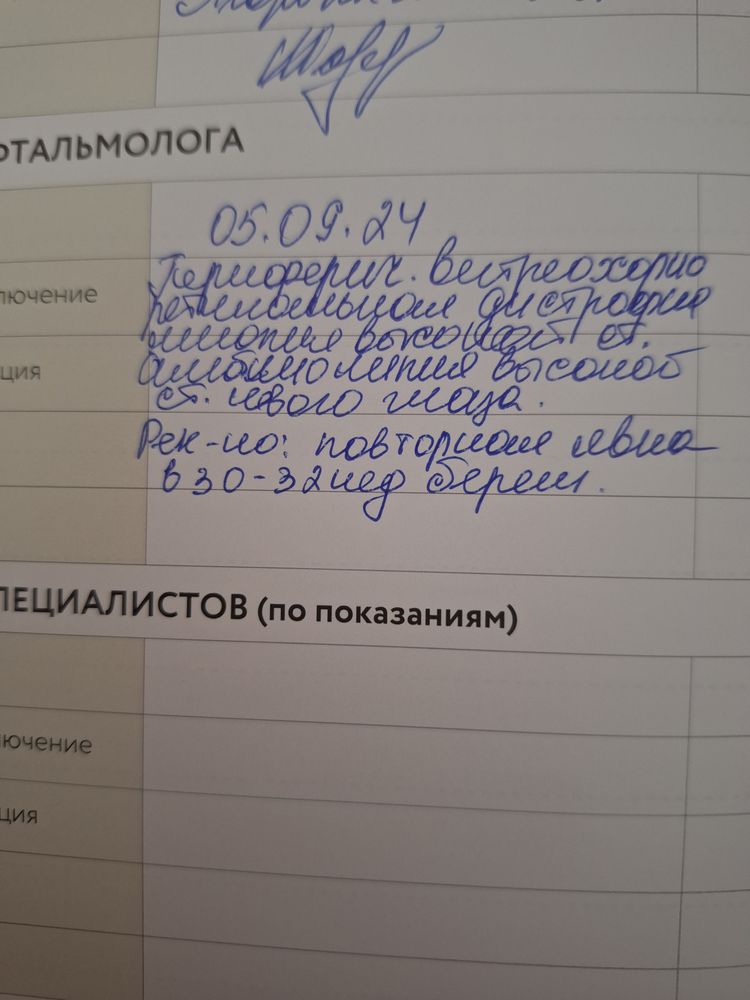 ФТАЛЬМОЛОГА
05.09.24
Периферич. витреохорио
лючение
ретинальная дистрофия
миопия высокой ст.
ция
амблиопия высокой
ст. левого глаза.
Рек-но: повторная явка
в 30-32 нед берем.
ПЕЦИАЛИСТОВ (по показаниям)
лючение
ция